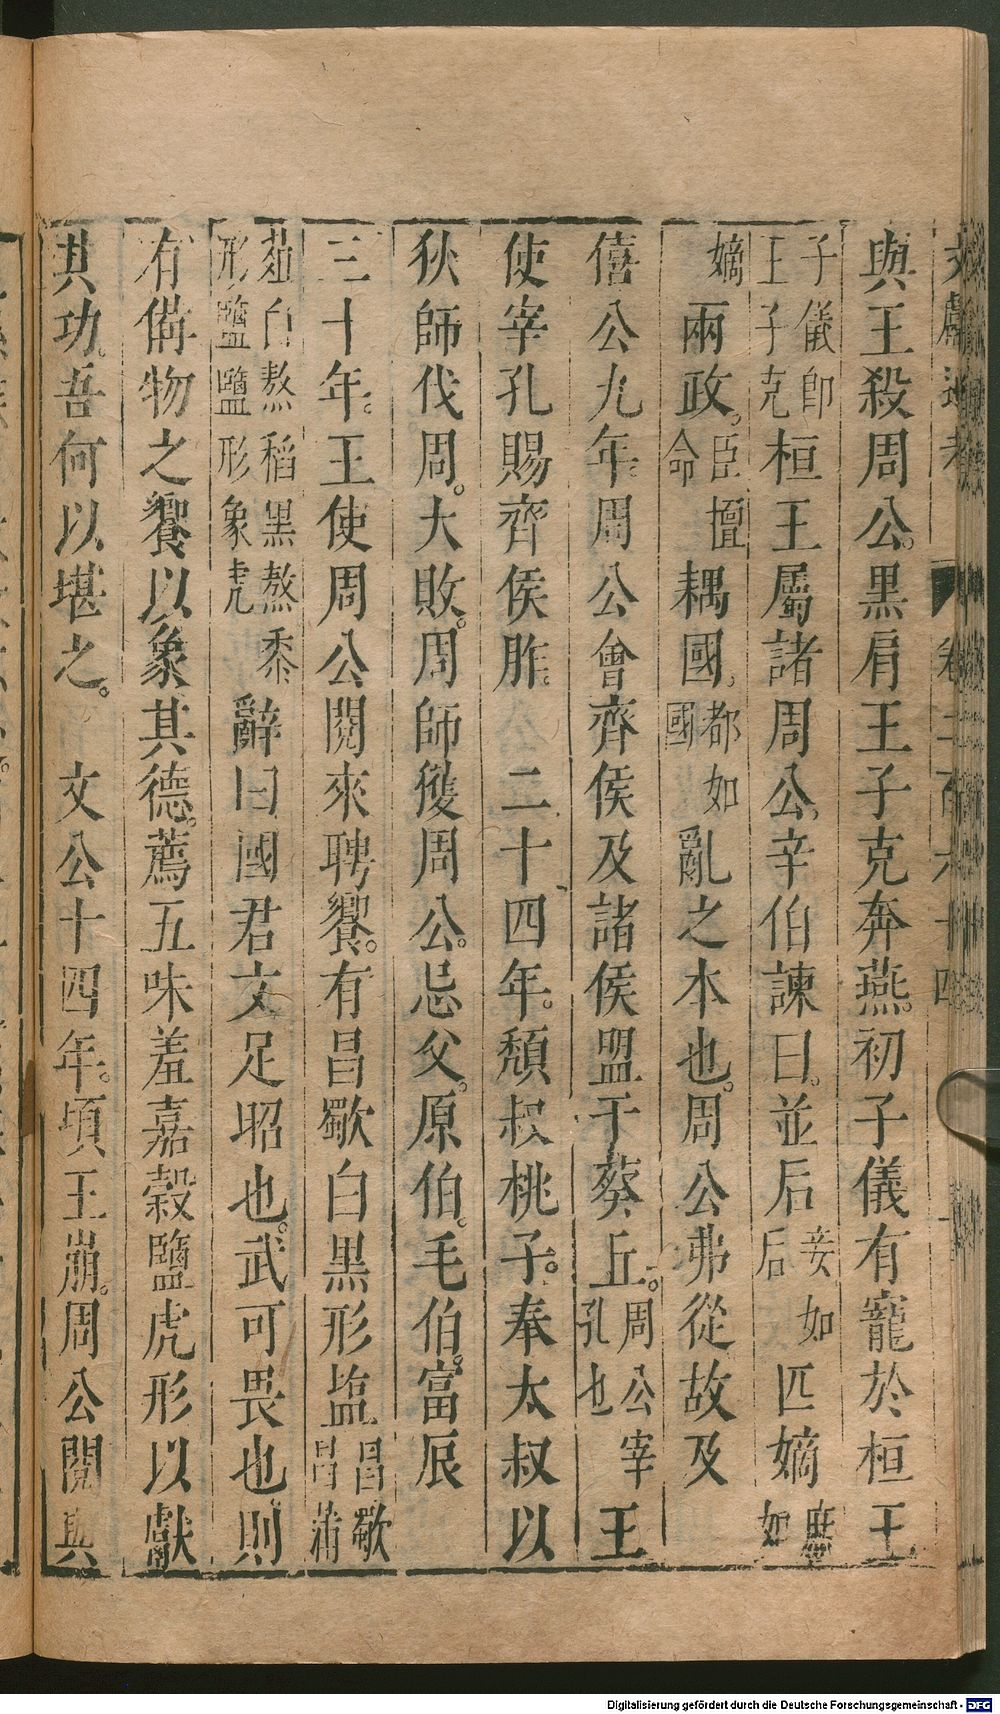 文獻通考 卷二百六十四
與王殺周公。黑肩王子克奔燕。初子儀有寵於桓王
子儀卽王子克桓王屬諸周公。辛伯諫曰。並后妾如后匹嫡庶如
嫡兩政。臣擅命耦國。都如國亂之本也。周公弗從故及
僖公九年。周公會齊侯及諸侯盟于葵丘。周公宰孔也王
使宰孔賜齊侯胙。二十四年。頹叔桃子。奉太叔以
狄師伐周。大敗。周師獲周公。忌父。原伯。毛伯。富辰
三十年。王使周公閱來聘饗。有昌歜白黑形塩昌歜昌蒲
葅白熬稻黑熬黍形鹽鹽形象虎辭曰國君文足昭也。武可畏也。則
有備物之饗以象其德。薦五味羞嘉穀鹽虎形以獻
其功。吾何以堪之。文公十四年。頃王崩。周公閱與
Digitalisierung gefördert durch die Deutsche Forschungsgemeinschaft - DFG